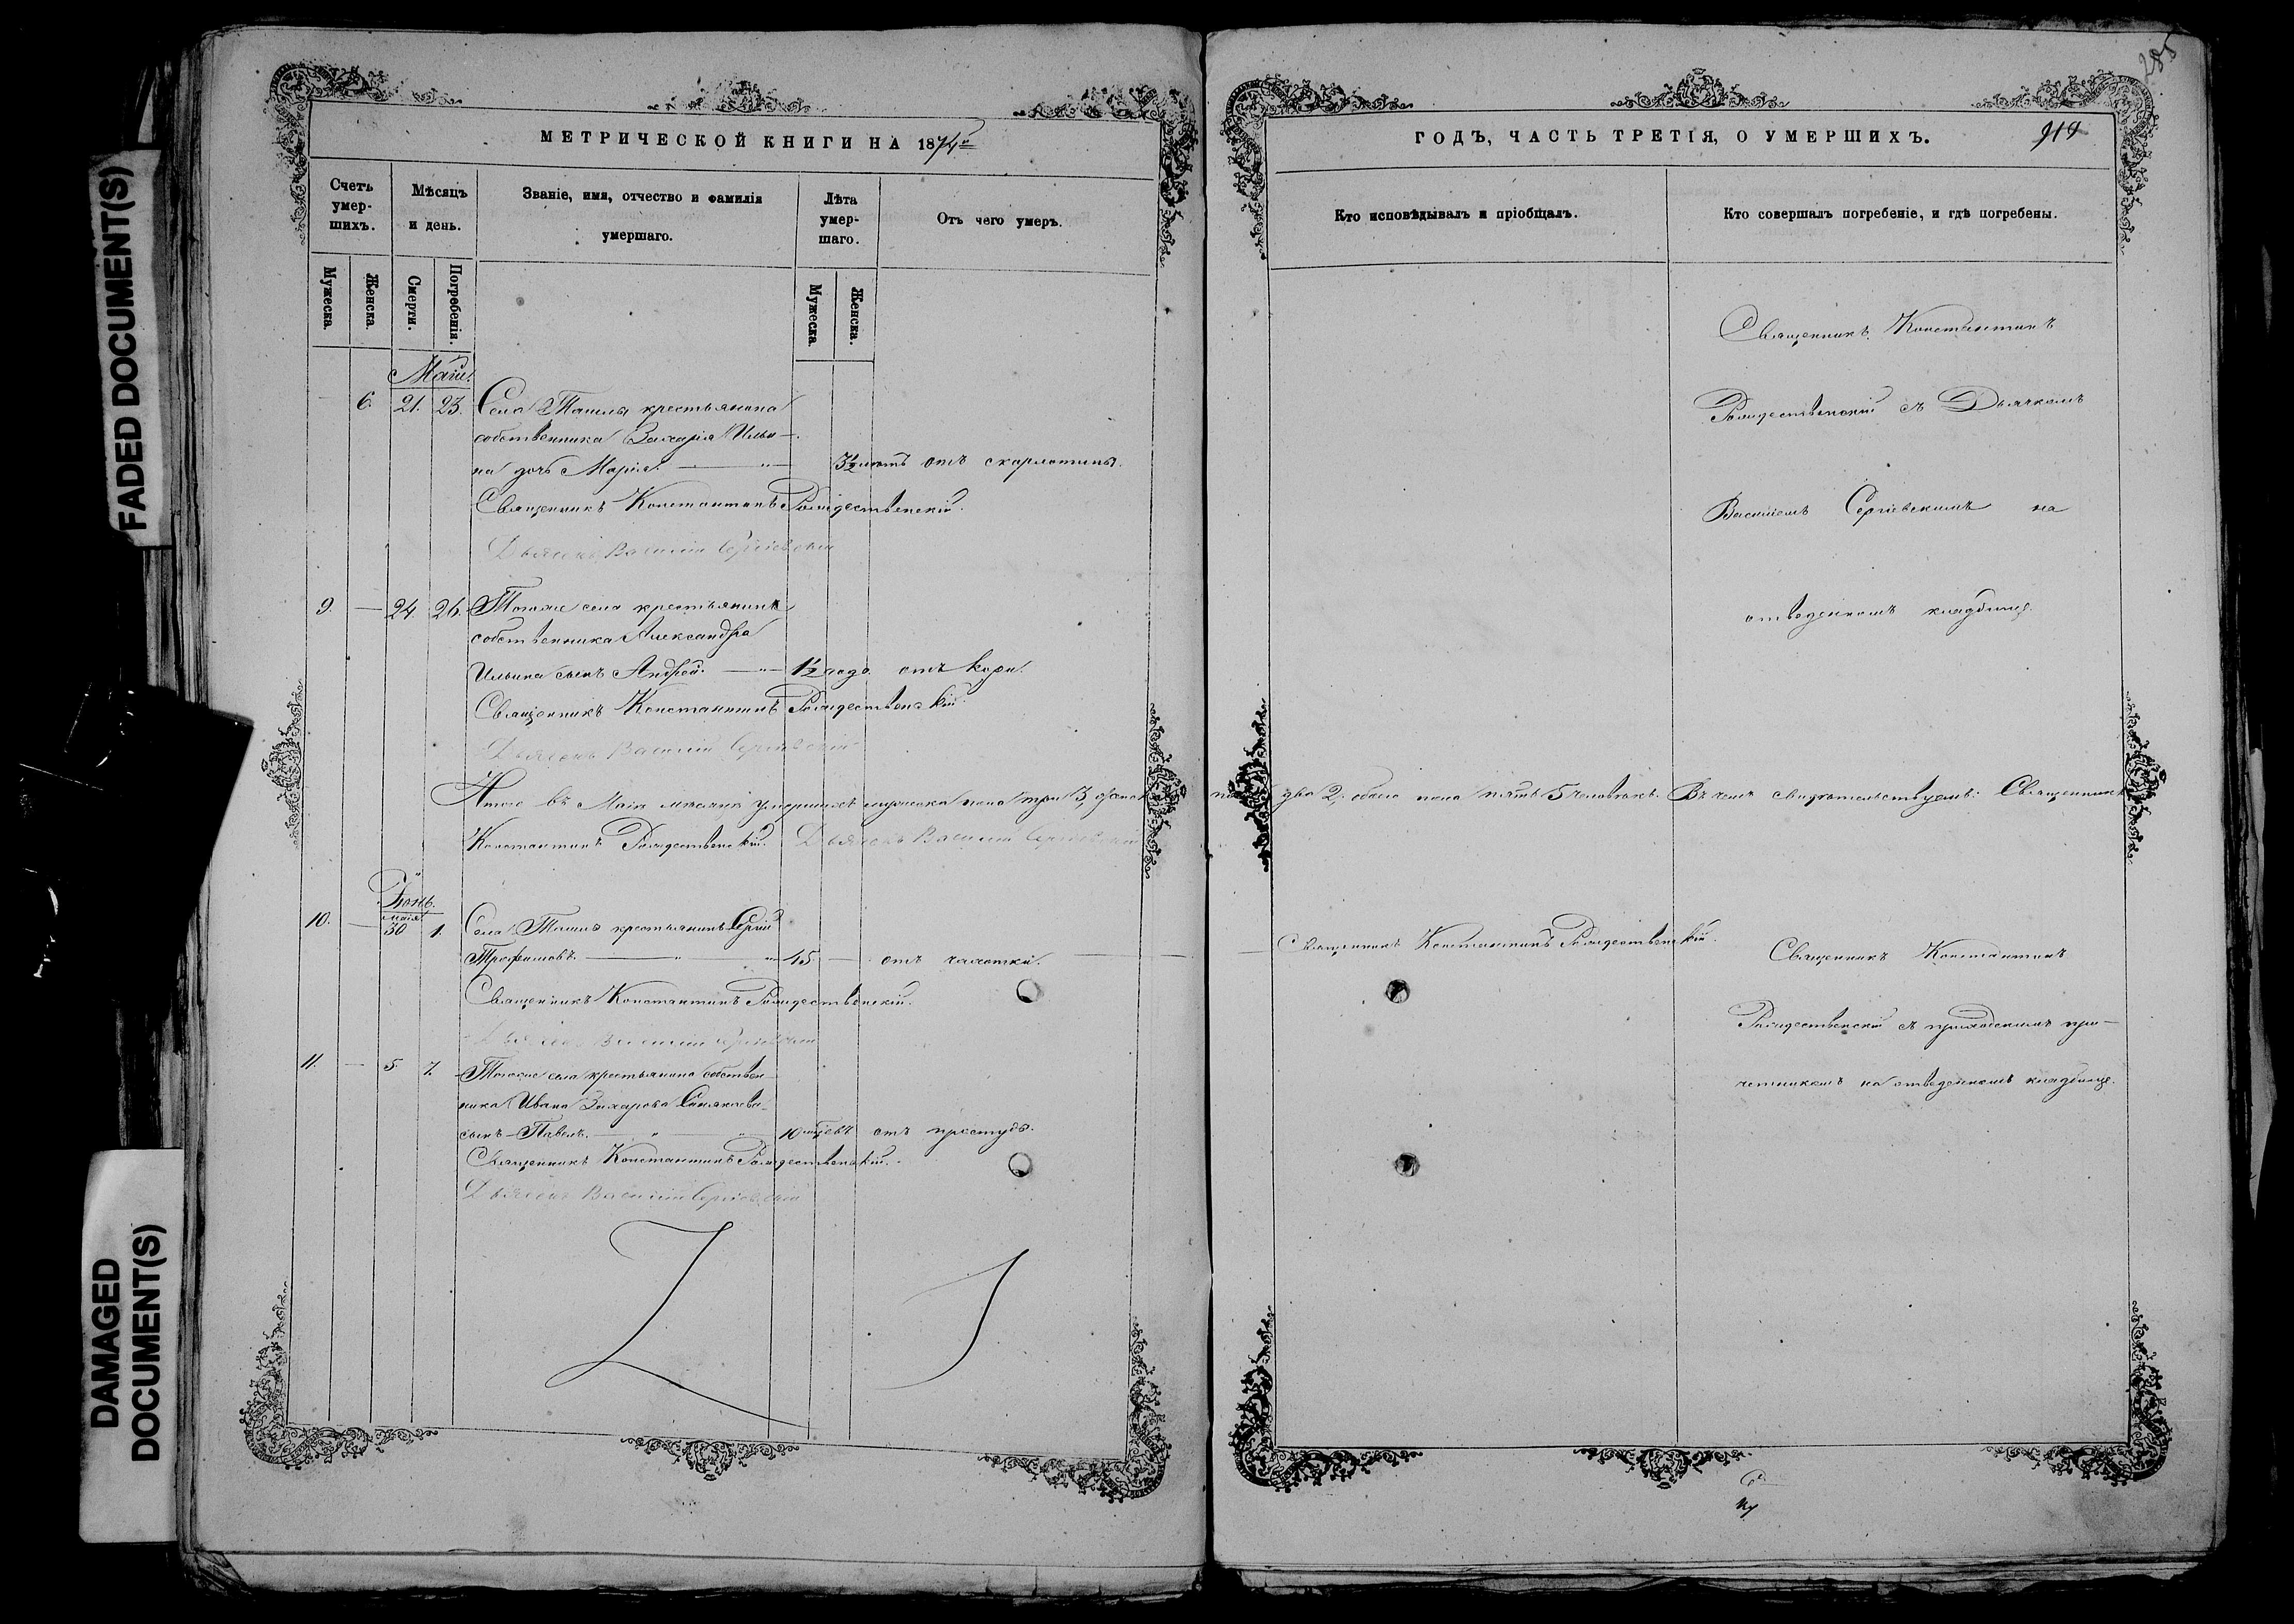 FADED DOCUMENT(S)
DAMAGED DOCUMENT(S)
МЕТРИЧЕСКОЙ КНИГИ НА 1874й
Счетъ умер-шихъ.
Мѣсяцъ и день.
Званіе, имя, отчество и фамилія умершаго.
Лѣта умер-шаго.
Отъ чего умеръ.
Мужеска.
Женска.
Смерти.
Погребенія.
Мужеска.
Женска.
Маій.
6. 21. 23. Села Ташлы крестьянина
собственника Захарія Ильи-
на дочь Марія. 3½ лѣтъ отъ скарлатины.
Священникъ Константинъ Рождественскій.
Дьячекъ Василій Сергіевскій
9. — 24. 26. Тогоже села крестьянина
собственника Александра
Ильина сынъ Андрей. — 1½ года. отъ кори.
Священникъ Константинъ Рождественскій.
Дьячекъ Василій Сергіевскій
Итого въ Маія мѣсяцѣ умершихъ мужеска пола три 3, женск
Константинъ Рождественскій. Дьячекъ Василій Сергіевскій
Іюнь.
маія
10. — 30 1. Села Ташлы крестьянинъ Сергій
Трофимовъ. — 45 — отъ чахотки.
Священникъ Константинъ Рождественскій.
Дьячекъ Василій Сергіевскій
11. — 5 7. Тогоже села крестьянина собствен-
ника Ивана Захарова
сынъ Павелъ. 10 мѣ отъ простуды.
Священникъ Константинъ Рождественскій.
Дьячекъ Василій Сергіевскій
285
ГОДЪ, ЧАСТЬ ТРЕТІЯ, О УМЕРШИХЪ.
Кто исповѣдывалъ и пріобщалъ.
Кто совершалъ погребеніе, и гдѣ погребены.
Священникъ Константинъ
Рождественскій съ Дьячкомъ
Василіемъ Сергіевскимъ на
отведенномъ кладбище.
два 2. обаго пола пять 5 человѣкъ. Въ чемъ свидѣтельствуемъ: Священникъ
Священникъ Константинъ Рождественскій.
Священникъ Константинъ
Рождественскій съ приходскимъ при-
четникомъ на отведенномъ кладбище.